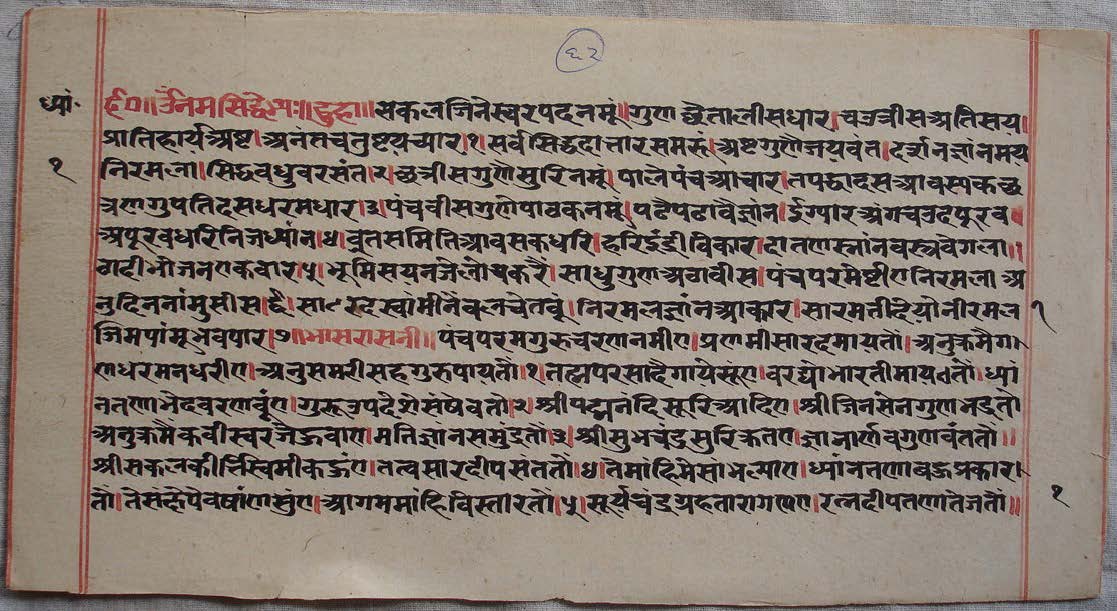 ६२
ध्यां॰
॥ र्द॰॥ ॐ नम सिद्धेभ्यः॥ दुहा॥ सकलजिनेस्वरपदनमूं॥ गुण छैतालीसधार। चउत्रीसअतिसय।
प्रातिहार्यअष्ट। अनंतचतुष्टयच्यार।१। सर्वसिद्धदातारसमरूं। अष्टगुणैजयवंत। दर्शनज्ञानमय
१
निरमला। सिद्धवधुवरसंत।२। छत्रीसगुणैसुरिनमू। पालैपंचआचार। तपद्वादसआवस्यकछ
त्रणगुपतिदसधरमधार।३। पंचवीसगुणैपाठकनमूं। पढैपढावैज्ञांन। ईग्यारअंगचउदपूरव॥
अपूरवधरिनिजध्यांन।४। वृतसमितिआवसकधरि। हरिईंद्रीविकार। दातणस्नांनवस्त्रवेगला॥
ठाढीभोजनएकवार।५। भूमिसयनजेलोचकरै। साधुगुणअठावीस। पंचपरमेष्टीएनिरमला अ
नुदिननांमुसीस।६। सारदस्वामीनेवलचेतवूं। निरमलज्ञांनआकार। सारमती
१
जिमपांमूभवपार।७॥ भासरासनी॥ पंचपरमगुरुचरणनमीए। प्रणमीसारदमायतौ। अनुक्रमैग
णधरमनधरीए। अनुसमरीसहगुरुपायतौ।१। तह्मपरसादैगायेसूंए। वरद्योभारतीमायतौ। ध्यां
नतणाभेदवरणवूंए। गुरूउपदेशेसंषेवतौ।२। श्रीपद्मनंदिसूरिआदिए। श्रीजिनसेनगुणभद्रतौ
अनुक्रमैकवीस्वरजेहूवाए। मतिज्ञांनसमुंद्रतौ।३। श्रीसुभचंद्रसुरिकृतए। ज्ञानार्णवगुणवंततौ॥
श्रीसकलकीर्त्तिस्वामीकह्युंए। तत्वसारदीपसंततौ।४। तेमांहिमेसांभल्याए। ध्यांनतणाबहुप्रकार।
तौ। तेसंक्षेपेवषांणसुंए। आगममांहिविस्तारतौ।५। सूर्यचंद्रग्रहतारागणए। रत्नदीपतणातेजतौ॥
१